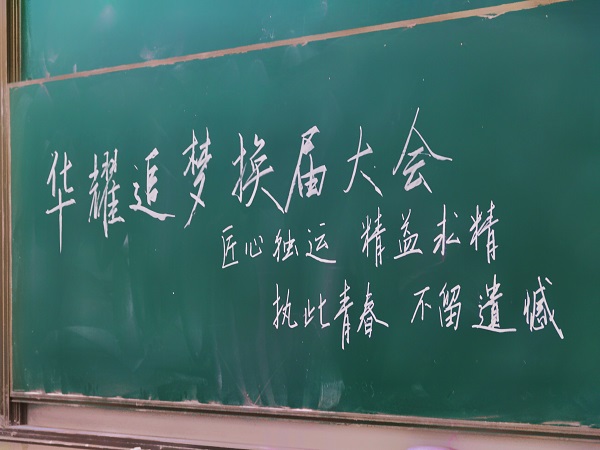 华耀追梦换届大会
匠心独运 精益求精
执此青春 不留遺憾